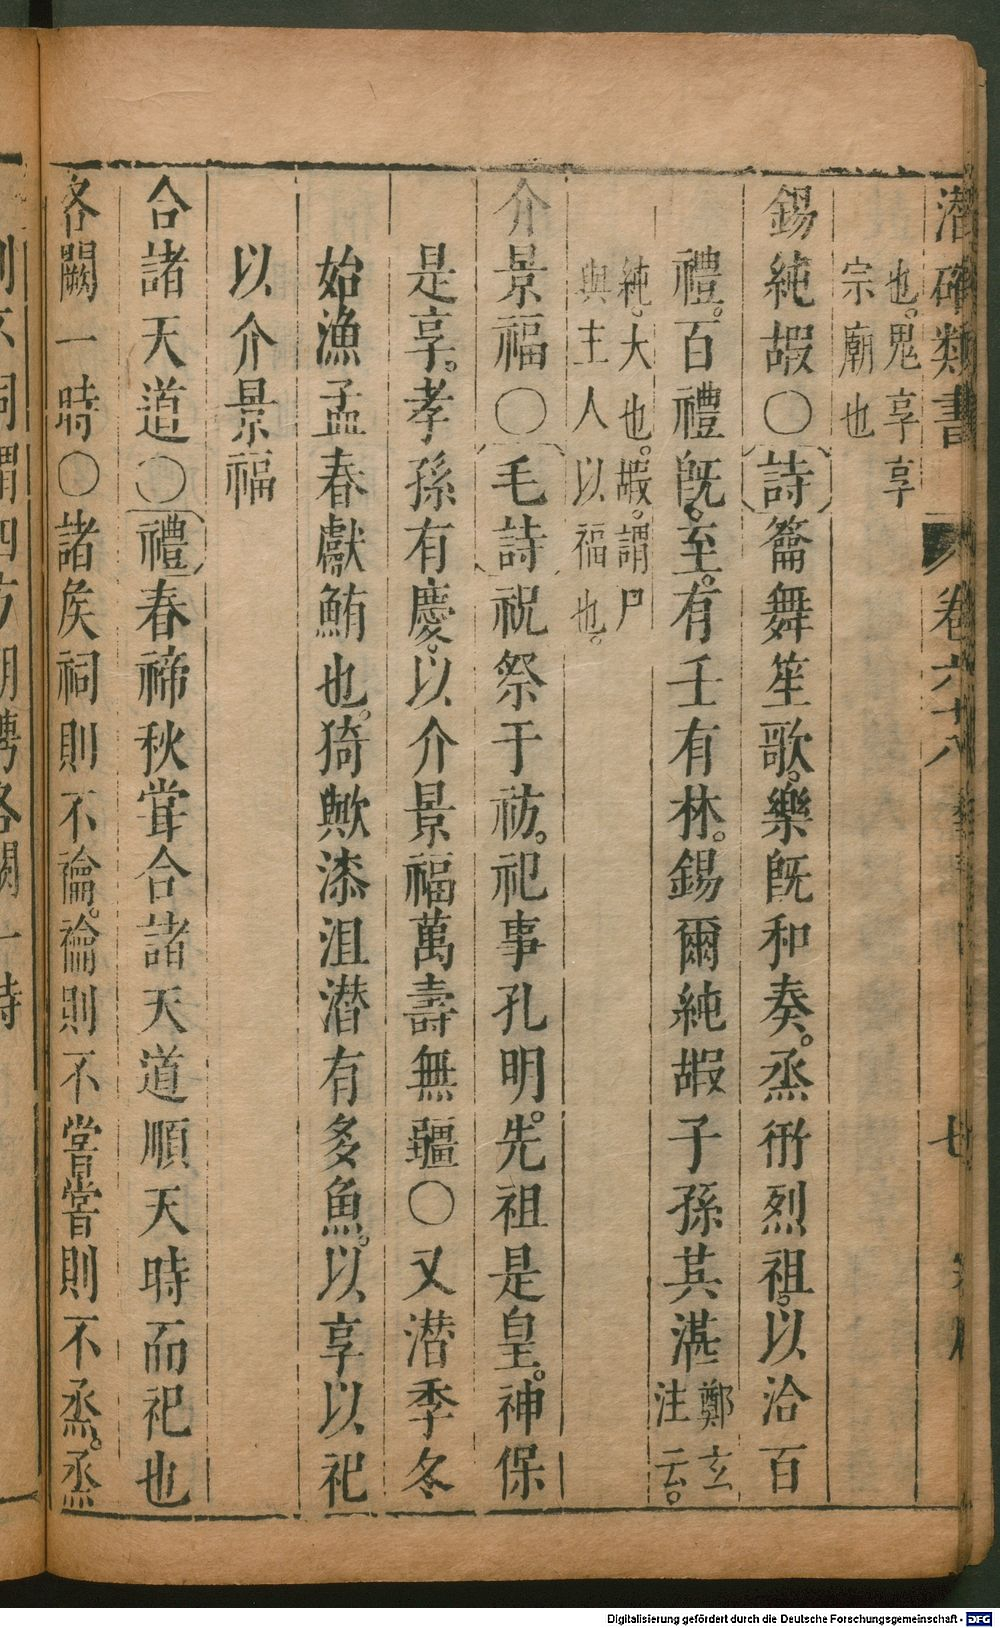 潛確類書 卷六十八
也。鬼享享
宗廟也
錫純嘏〇詩籥舞笙歌。樂旣和奏。烝衎烈祖。以洽百
禮。百禮旣。至。有壬有林。錫爾純嘏子孫其湛鄭玄
注云。
純。大也。嘏。謂尸
與主人以福也。
介景福〇毛詩祝祭于祊。祀事孔明。先祖是皇。神保
是享。孝孫有慶。以介景福萬壽無疆〇又潛季冬
始漁孟春獻鮪也。猗歟漆沮潛有多魚。以享以祀
以介景福
合諸天道〇禮春禘秋甞合諸天道順天時而祀也
各闕一時〇諸矦祠則不禴。禴則不嘗嘗則不烝。烝
Digitalisierung gefördert durch die Deutsche Forschungsgemeinschaft - DFG